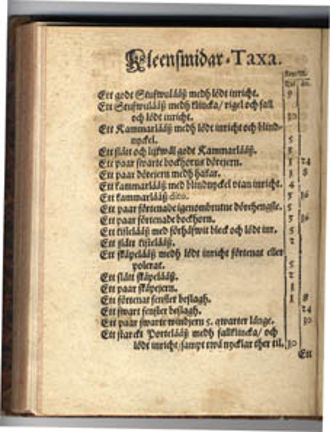 Kleensmidar-Taxa.
Ett godt Stufwulååß medh lödt inricht. 9
Ett Stufwulååß medh klincka/ rigel och fall
och lödt inricht. 10
Ett Kammarlååß medh lödt inricht och blind-
nyckel. 5
Ett slätt och Kammarlååß. 5
Ett paar swarte bockhorns dörejern. 1 24
Ett paar dörejern medh hakar. 1 8
Ett kammarlååß med blindnyckel vtan inricht. 4
Ett kammarlååß dito. 3 16
Ett paar förtenade igenombrutne dörehengsle. 5
Ett paar förtenade bockhorn. 5 16
Ett kistelååß med bleck och lödt inr. 5
Ett slätt kistelååß. 2
Ett skåpelååß medh lödt inricht förtenat eller
polerat. 5
Ett slätt skåpelååß. 2
Ett paar skåpejern. 1
Ett förtenat fenster beslagh. 1 8
Ett swart fenster beslagh. 24
Ett paar swarte windjern 5. qwarter långe. 30
Ett starckt Portelååß medh fallklincka/ och
lödt inricht/sampt twå nycklar ther til. 10
Ett